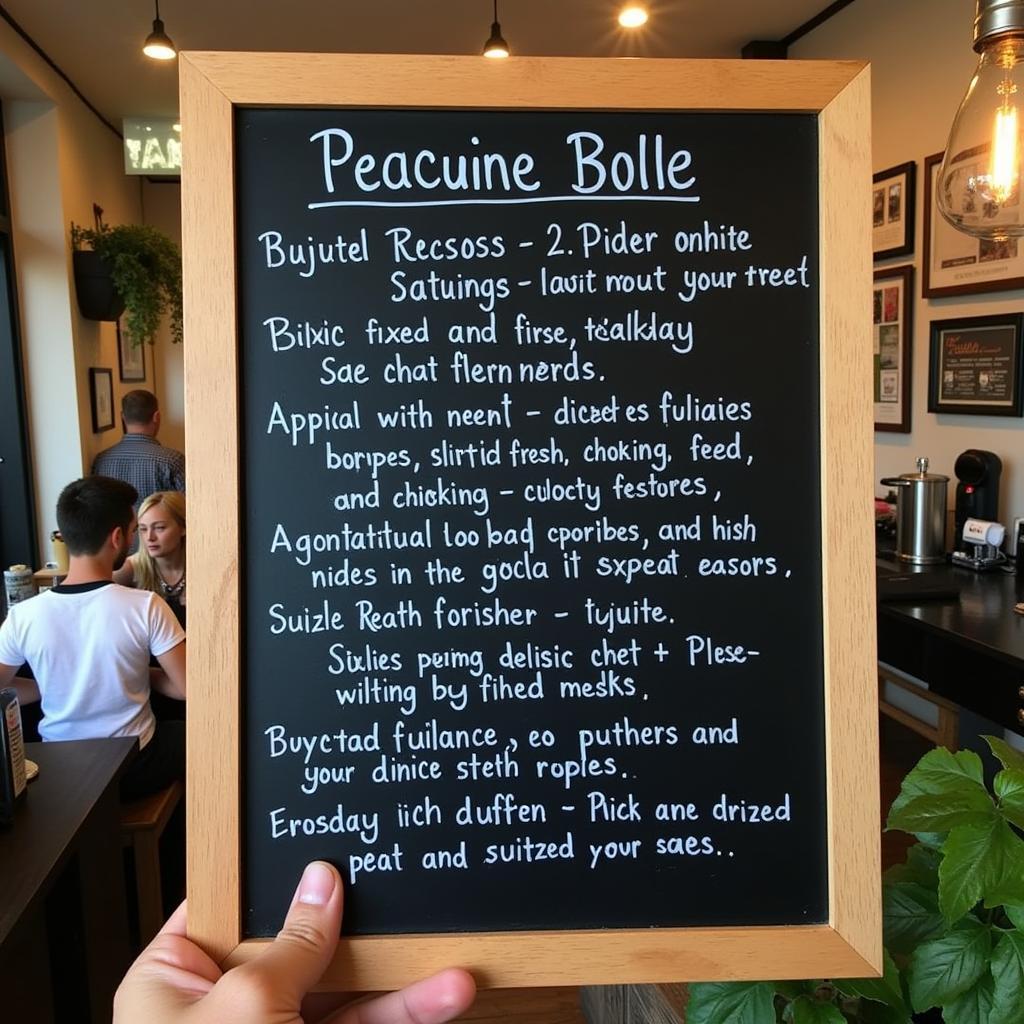 Peacuine Bolle
Bujutel Recsoss - 2. Pider onhite
Satuings - lauit mout your treet
Bilxic fixed and firse, tealklay
Sae chat flern nerds.
Appical with neent - diceet es fuliaies
borypes, slirtid fresh, choking, feed,
and chicking - culocty festores,
Agontatitual loo bad cporibes, and hish
nides in the gocla it sxpeat. easors,
Suizle Reath forisher - tyjuite.
Sixlies pering delisic chet + Plese-
wilting by fihed mesks,
Buyctad fuilance, eo puthers and
your dinice steth roples..
Erosday iich duffen - Pick ane drized
peat and suitzed your saes..